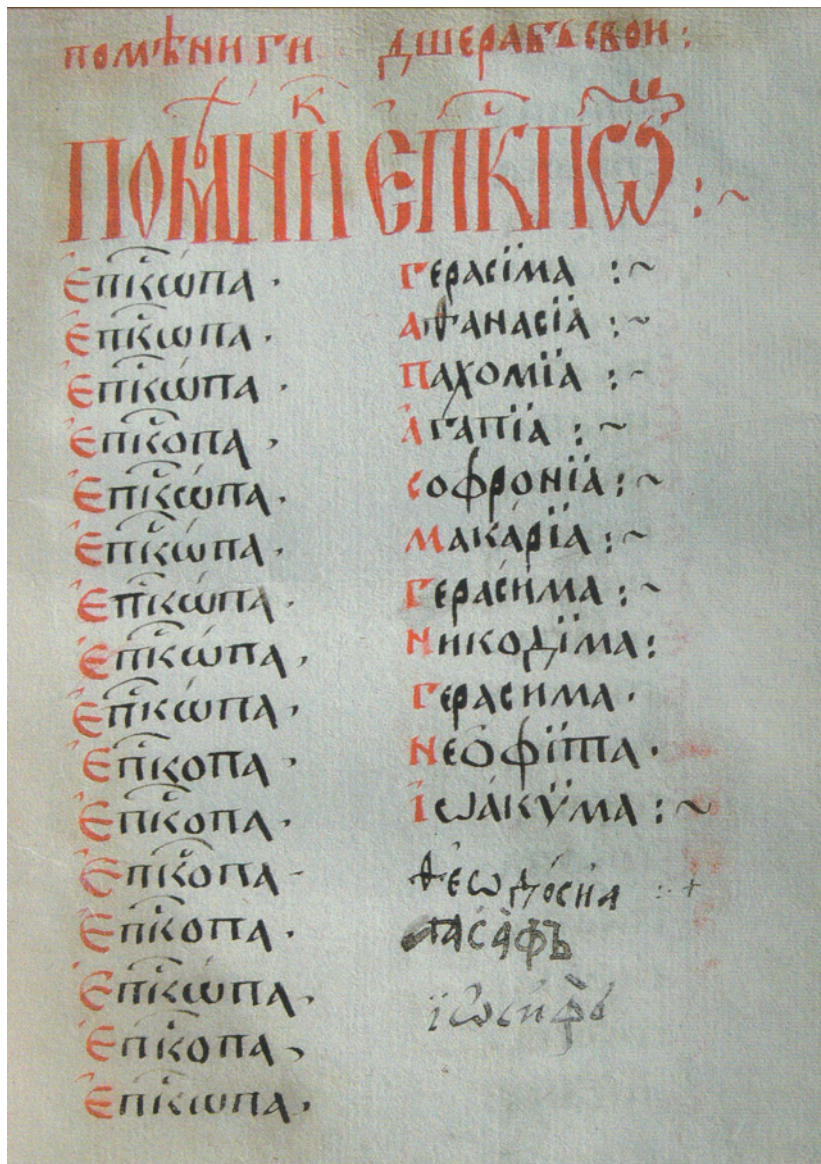 помѣни ги дшерабъ свои :
ПОМНИК ЄПКПѠ :~
Єпкѡпа · герасїма :~
Єпкѡпа · аѳанасїа :~
Єпкѡпа · пахомїа :~
Єпкопа · агапїа :~
Єпкѡпа · софронїа :~
Єпкѡпа · макарїа :~
Єпкѡпа · герасима :~
Єпкѡпа · никодїма :
Єпкѡпа · герасима ·
Єпкопа · неофїта ·
Єпкопа · їѡакѵма :~
Єпкопа · ѳеѡдосиа :+
Єпкопа · іасафъ
Єпкѡпа · їѡсифъ
Єпкопа ·
Єпкѡпа ·